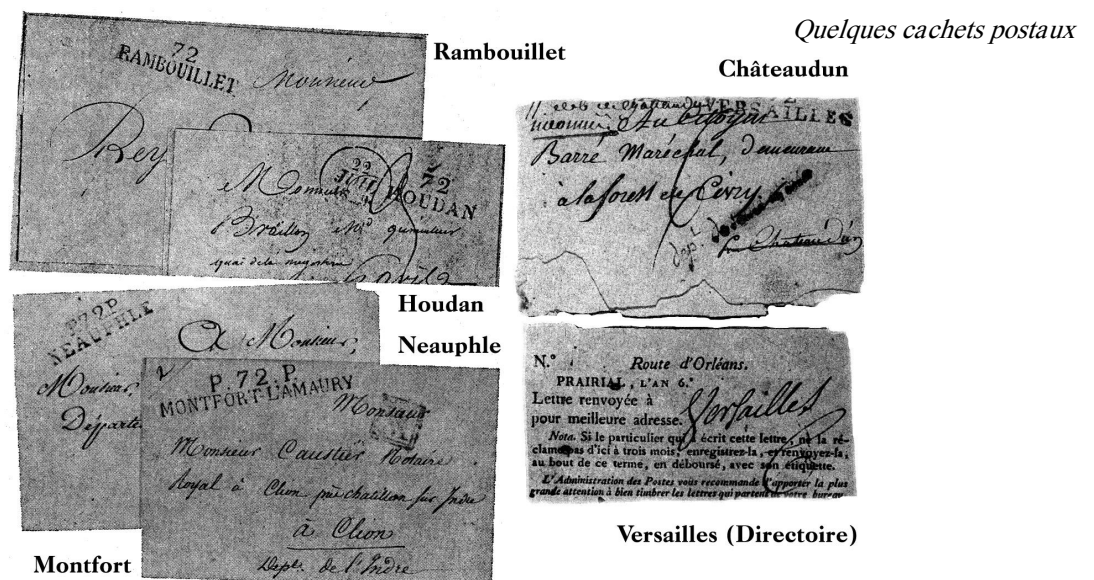 Quelques cachets postaux
Rambouillet
72
RAMBOUILLET
Monsieur
Rey
22
JUIL
72
HOUDAN
Monsieur
quai de la
Houdan
Neauphle
P.72.P
NEAUPHLE
A Monsieur,
Monsieur,
Départe
2
P.72.P.
MONTFORT-L'AMAURY
Monsieur
Monsieur Caustier Notaire
Royal à Cleon près chatillon sur Indre
à Cleon
Dept. de l'Indre
Montfort
Châteaudun
VERSAILLES
inconnu Au citoyen
Barré Maréchal, demeurant
à la forest de Civry
Chateaudun
N.°
Route d'Orléans.
PRAIRIAL, L'AN 6.e
Lettre renvoyée à
Versailles
pour meilleure adresse.
Nota. Si le particulier qui a écrit cette lettre, ne la ré-
clame pas d'ici à trois mois, enregistrez-la, et renvoyez-la,
au bout de ce terme, en déboursé, avec son étiquette.
L'Administration des Postes vous recommande d'apporter la plus
grande attention à bien timbrer les lettres qui partent de votre bureau
Versailles (Directoire)